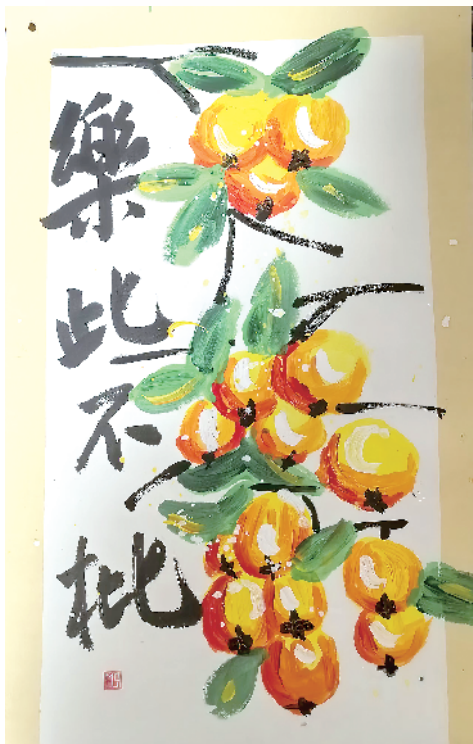 樂此不枇